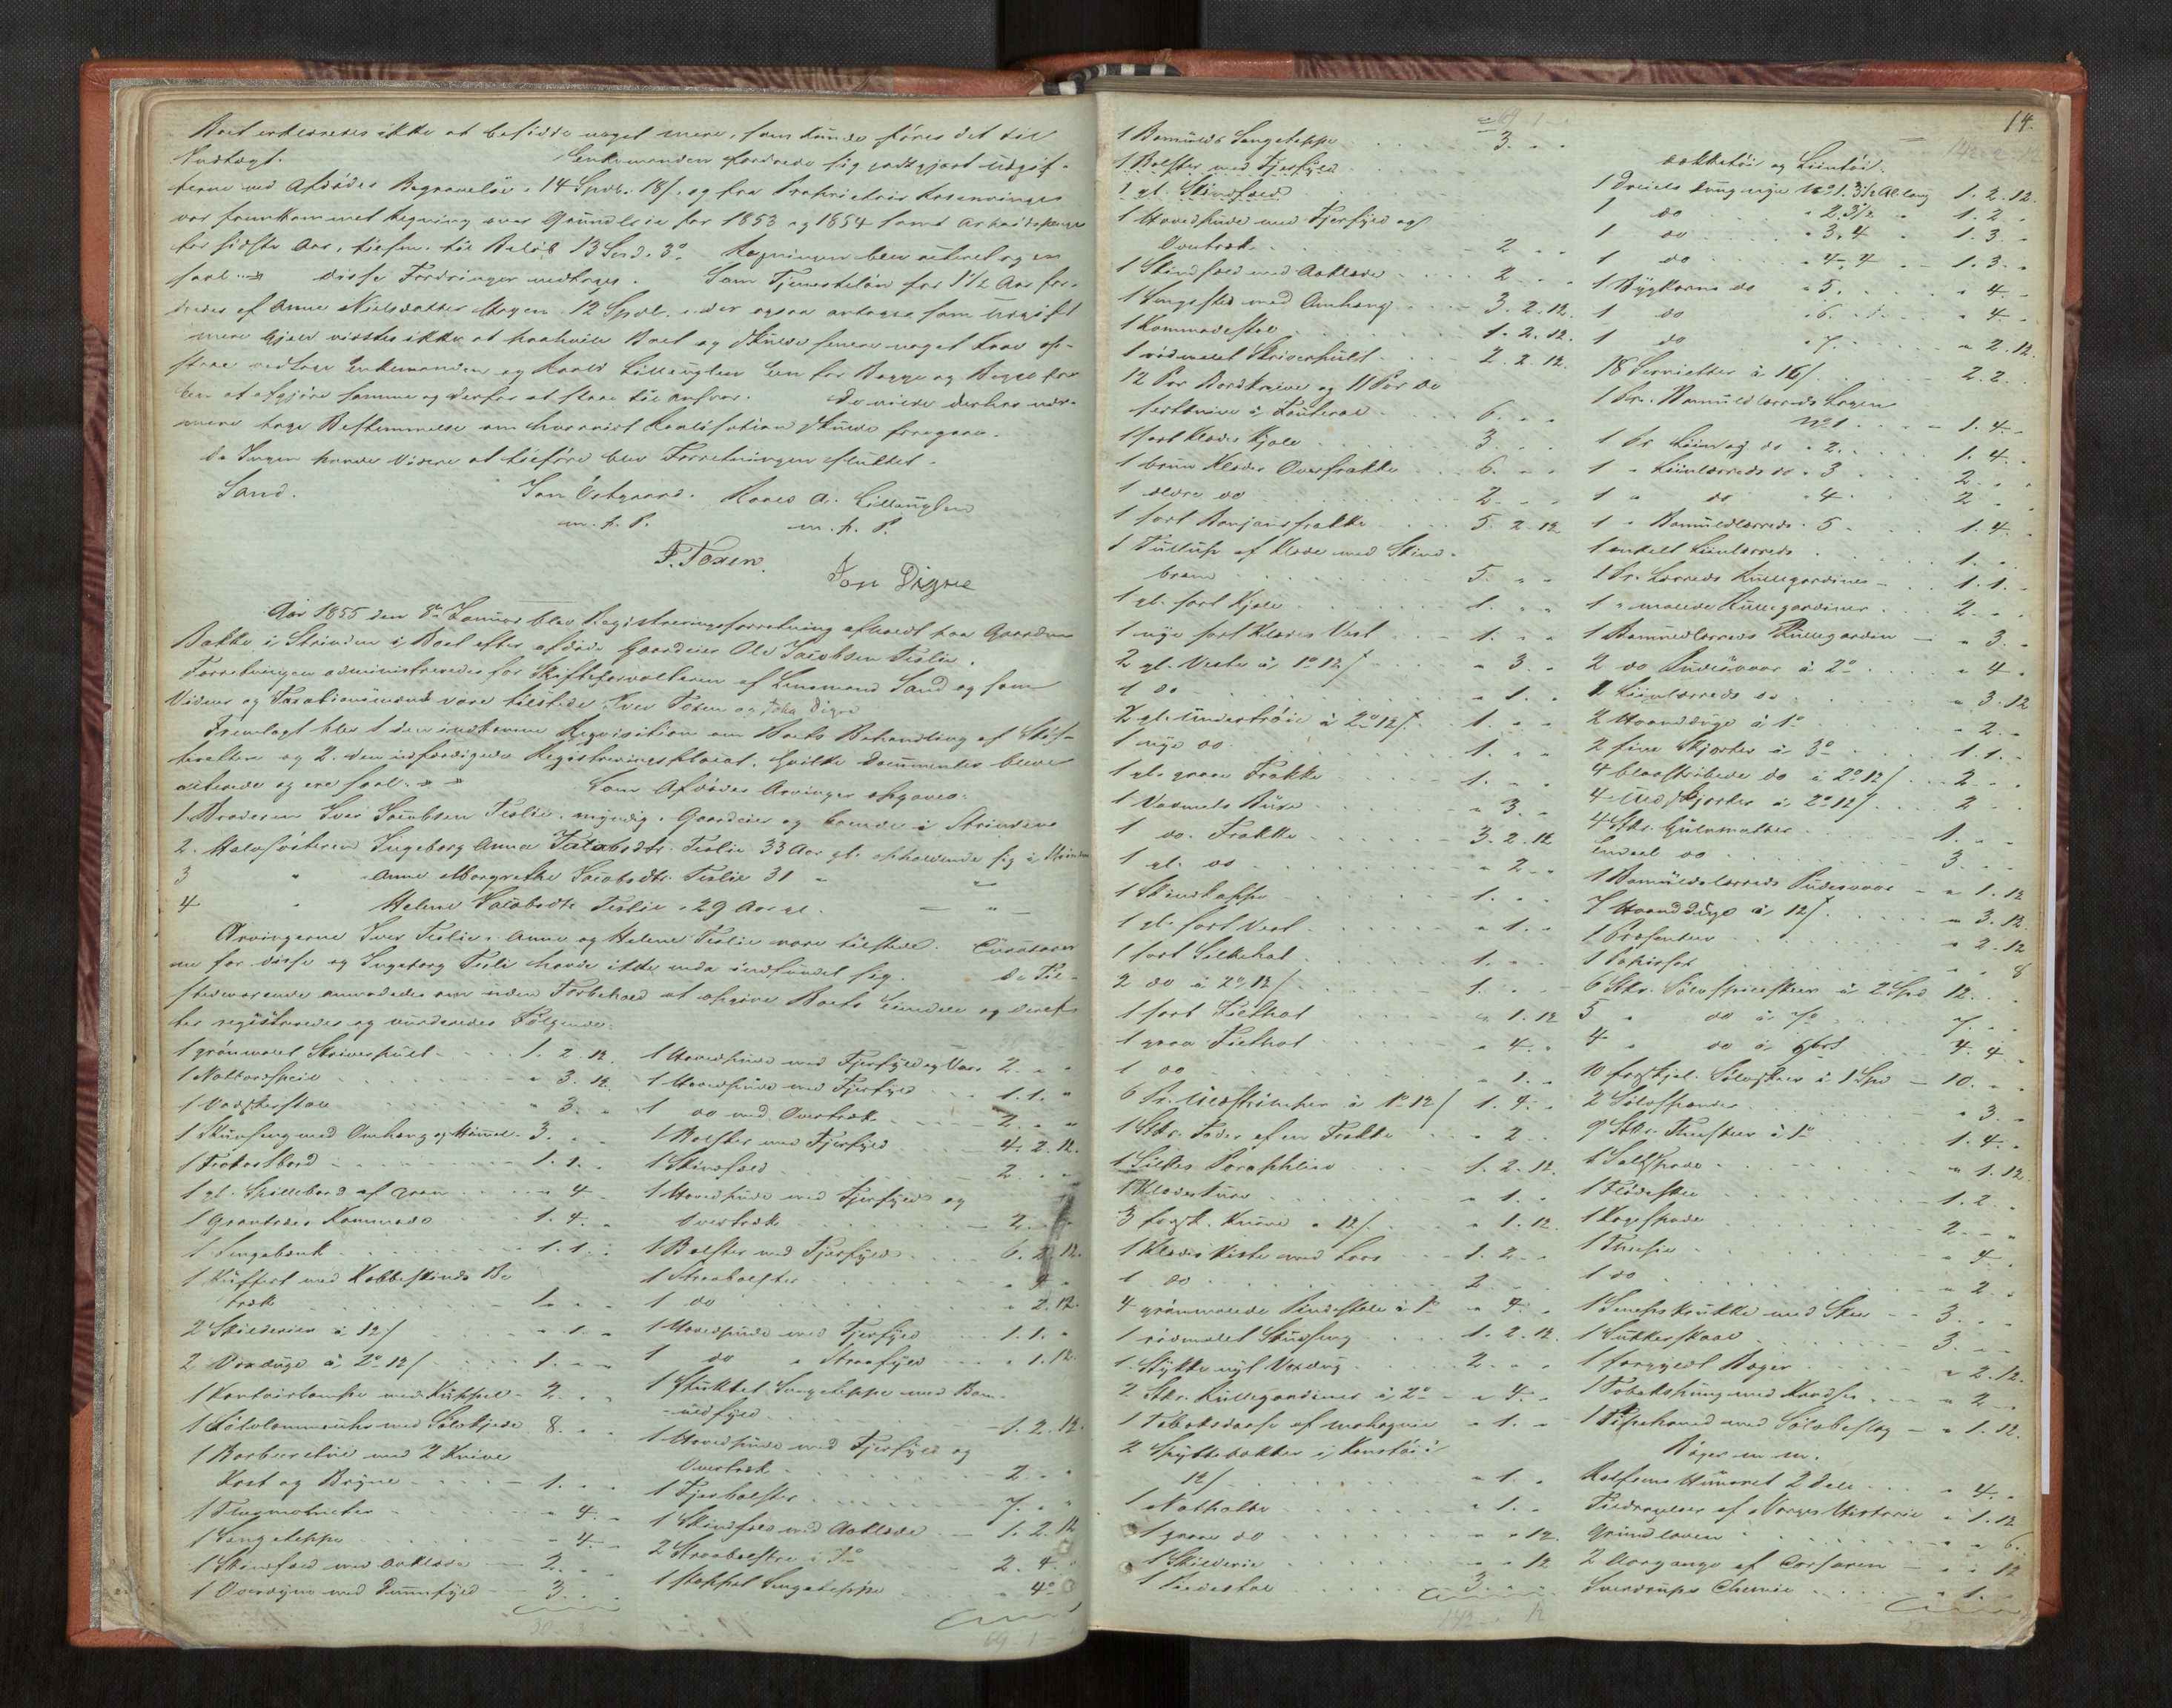 Boet erklæredes ikke at besidde noget mere, som kunde føres det til
Indtægt. Enkemanden fordrede sig godtgjort Udgif-
terne ved Afdødes Begravelse 14 Spd. 18 s. og fra Proprietair Rosenvinge
var fremkommet Regning over Grundleie for 1853 og 1854 samt Arbeidspenge
for sidste Aar, tilsam. til Beløb 13 Spd. 3 o. Regningen blev acteret og er
saal. disse Fordringer vedtoges. Som Tjenesteløn for 1 1/2 Aar for-
dredes af Anne Nielsdatter Moxen 12 Spdl. der ogsaa antages som Udgift
mere Gjæld vidstes ikke at paahvile Boet og skulde senere noget Krav op-
staae vedtage Enkemanden og Roald Lilleuglen Een for Begge og Begge for
Een at afgjøre samme og derfor at staae til ansvar. De ville derhos nær-
mere tage Bestemmelse om hvorvidt Realisation skulde foregaae.
Da Ingen havde Videre at tilføre blev Forretningen sluttet.
Sand. Jon Østgaard. Roald A. Lilleuglen
m. p. P. m. p. P.
I. Toxen. Jon Digre
Aar 1855 den 8de Januar blev Registreringsforretning afholdt paa Gaarden
Bakke i Strinden i Boet efter afdøde Gaardeier Ole Jacobsen Teslie.
Forretningen administreredes for Skifteforvalteren af Lensmand Sand og som
Vidner og Taxationsmænd vare tilstede Iver Toxen og John Digre
Fremlagt blev 1 den indkomne Reqvisition om Boets Behandling af Skif-
teretten og 2. den udfærdigede Registreringsplacat. Hvilke Documenter bleve
acterede og ere saal. Som Afdødes Arvinger opgaves:
1. Broderen Iver Jacobsen Teslie, myndig, Gaardeier og boende i Strinden
2. Halvsøsteren Ingeborg Anna Jacobsdtr. Teslie 33 Aar gl. opholdende sig i Strinden
3 " Anne Margrethe Jacobsdtr. Teslie 31 "
4 " Helene Jacobsdtr Teslie 29 Aar gl.
Arvingerne Iver Teslie, Anne og Helene Teslie vare tilstede. Curatorer
ne for disse og Ingeborg Tesli havde ikke enda indfundet sig. De Til-
stedeværende anmodedes om uden Forbehold at opgive Boets Eiendele og deref-
ter registreredes og vurderedes Følgende:
1 grønmalet Skriverpult 1. 2. 12.
1 Natbordspeil " 3. 12.
1 Vadskerstole " 3. "
1 Stuvseng med Omhæng og Himmel 3. " "
1 Frokostbord 1. 1. "
1 gl. Spillebord af Gran " 4 "
1 Grantræes Kommode 1. 4. "
1 Sengebænk 1. 1. "
1 Kuffert med Kobbeskinds Be
træk 1. " "
2 Skilderier à 12 s " 1. "
2 Voxduge à 2o 12 s 1. " "
1 Kontoirlampe med Kuppel 2. " "
1 Sølvlommeuhr med Sølvkjede 8. " "
1 Barbeeretui med 2 Knive
Kost og Bryne 1. " "
1 Thermometer " 4. "
1 Sengeteppe " 4. "
1 Skindfeld med Aaklæde 2. " "
1 Overdyne med Duunfyld 3. " "
1 Hovedpude med Fjerfyld og Vaar 2. " "
1 Hovedpude med Fjerfyld 1. 1. "
1 do med Overtræk 2. " "
1 Bolster med Fjerfyld 4. 2. 12.
1 Skindfeld 2. " "
1 Hovedpude med Fjerfyld og
Overtræk 2. " "
1 Bolster med Fjerfyld 6. 2. 12.
1 Straabolster " 4 "
1 do " 2. 12.
1 Hovedpude med Fjerfyld 1. 1. "
1 do " Straafyld " 1. 12.
1 stukket Sengeteppe med Bom-
uldfyld 1. 2. 12.
1 Hovedpude med Fjerfyld og
Overtræk 2. " "
1 Fjerbolster 7. " "
1 Skindfeld med Aaklæde 1. 2. 12
2 Straabolstre à 7o 2. 4. "
1 stoppet Sengeteppe " 4o
69 1
14
69. 1
1 Bomulds Sengeteppe 3. " "
1 Bolster med Fjerfyld
1 gl. Skindfeld
1 Hovedpude med Fjerfyld og
Overtræk 2 " "
1 Skindfeld med Aaklæde 2 " "
1 Sengested med Omhæng 3. 2. 12.
1 Kommodestol 1. 2. 12.
1 rødmalet Skriverpult 2. 2. 12.
12 Par Bordknive og 11 Par De
sertknive i Fouteral 6. " "
1 sort Klædes Kjole 3 " "
1 brun Klædes Overfrakke 6. " "
1 ældre do 2 " "
1 sort Bonjoursfrakke 5. 2. 12
1 Tullup af Klæde med Skind-
bræm 5. " "
1 gl. sort Kjole 1. " "
1 nye sort Klædes Vest 1. " "
2 gl. Veste à 1o 12 s " 3. "
1 do " 1. "
2 gl. Undertrøie à 2o 12 s 1. " "
1 nye do 1. " "
1 gl. graae Frakke 1. " "
1 Vadmels Buxe " 3. "
1 do. Frakke 3. 2. 12
1 gl. do " 2 "
1 Skindkappe 1. " "
1 gl. sort Vest " 1. "
1 sort Silkehat 1. " "
2 do à 2o 12 s 1. " "
1 sort Filthat " 1. 12
1 graa Filthat " 4. "
1 do " 1. "
6 Pr. Uldstrømper à 1o 12 s 1. 4. "
1 Stk. Foder af en Frakke " 2 "
1 Silkes Paraplui 1. 2. 12.
1 Klædeskurv " 1. "
3 forsk. Knive à 12 s " 1. 12.
1 Klædes Kiste med Laas 1. 2. "
1 do 2 " "
4 grønmalede Pindestole à 1o " 4. "
1 rødmalet Stuvseng 1. 2. 12.
1 Stykke nyt Voxdug 2. " "
2 Stk. Rullegardiner à 2o " 4. "
1 Tobaksdaase af Mahogni " 1. "
2 Spyttebakker i Kontoir à
12 s " 1. "
1 Natpotte " 1. "
1 graae do " " 12.
1 Skilderie " " 12
1 Pindestol 3. " "
dækketøi og Liintøi.
1 Dreiels Dug nye No. 1. 3 1/2 Al. lang 1. 2. 12.
1 do " 2. 3 1/2 " 1. 2 "
1 do " 3. 4 " 1. 3. "
1 do " 4. 4 " 1. 3. "
1 Bygkorns do " 5. " 4. "
1 do " 6. " 4 "
1 do " 7. " 2. 12.
18 Servietter à 16 s 2. 2. "
1 Pr. Bomuldlærreds Lagen
No. 1 1. 4. "
1 Pr Liin og do " 2. 1. 4. "
1 " Liinlærreds do " 3 2. " "
1 " do " 4 2 " "
1 " Bomuldlærreds " 5 1. 4. "
1 enkelt Liinlærreds 1. " "
1 Pr. Lærreds Rullegardiner 1. 1. "
1 " malede Rullegardiner 2. " "
1 Bomuldlærreds Rullegardin " 3. "
2 do Pudevaar à 2o " 4. "
2 Liinlærreds do " 3. 12
2 Haandduge à 1o " 2. "
2 fine Skjorter à 3o 1. 1. "
4 blaastribede do à 2o 12 s 2 " "
4 Uldskjorter à 2o 12 s 2 " "
4 Stk. Gulvmatter 1. " "
Endeel do 3 " "
1 Bomuldslærreds Pudevaar " 1. 12
7 Haandduge à 12 s " 3. 12.
1 Presenteer " 2. 12
1 " " 8
6 Stk. Sølvspiseskeer à 2 Spd. 12. " "
5 " do à 7o 7. " "
4 " do à 4. 4 "
10 forskjel. Sølvskeer à 1 Spd 10. " "
2 Sølvspænder " 3. "
9 Stk. Theskeer à 1o 1. 4. "
1 Saltspade " 1. 12.
1 Flødeskee 1. 2 "
1 Kagespade 2. " "
1 Theesie " 4. "
1 do " 2. "
1 Seneps Krukke med Skee 3. " "
1 Sukkerskaal 3. " "
1 forgyldt Bæger " 2. 12.
1 Tobakspung med Kvadst " 2 "
1 Pipehoved med Sølvbeslag " 1. 12.
Bøger m. m.
Rolfsens Humoret 2 Dele " 4. "
Tildragelser af Norges Historie " 1. 12
Grundloven " " 6.
2 Aargange af Corsaren " " 12
Sverdrups Chemie " 1. "